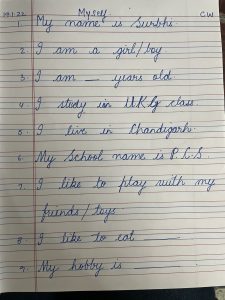 19.1.22 Myself C.W
1. My name is Surbhi
2. I am a girl/boy
3. I am __ years old
4. I study in U.K.G class.
5. I live in Chandigarh.
6. My School name is P.C.S
7. I like to play with my
friends/toys
8. I like to eat ____
9. My hobby is ____